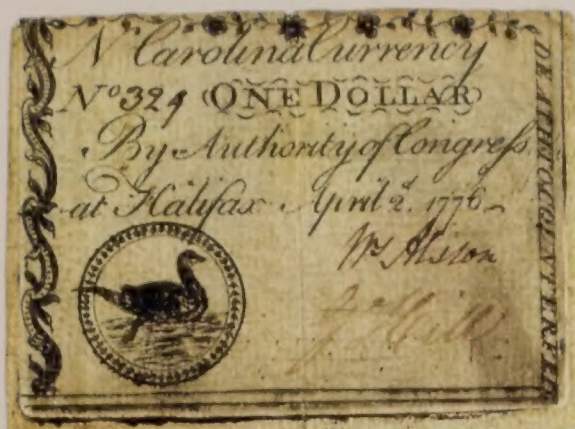 N Carolina Currency
No 329 ONE DOLLAR
By Authority of Congress
at Halifax April 2d. 1776
Wm Alston
Hill
DEATH TO COUNTERFEIT